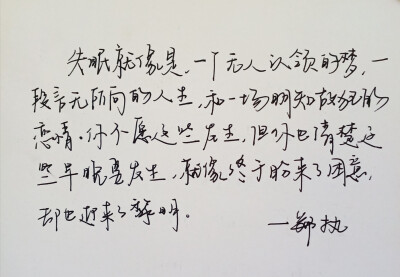 失眠就像是,一个无人认领的梦,一
段言无所向的人生,和一场明知故犯的
恋情。你不愿这些发生,但你也清楚这
些早晚要发生,就像终于盼来了困意,
却也起来了黎明。
一郑执